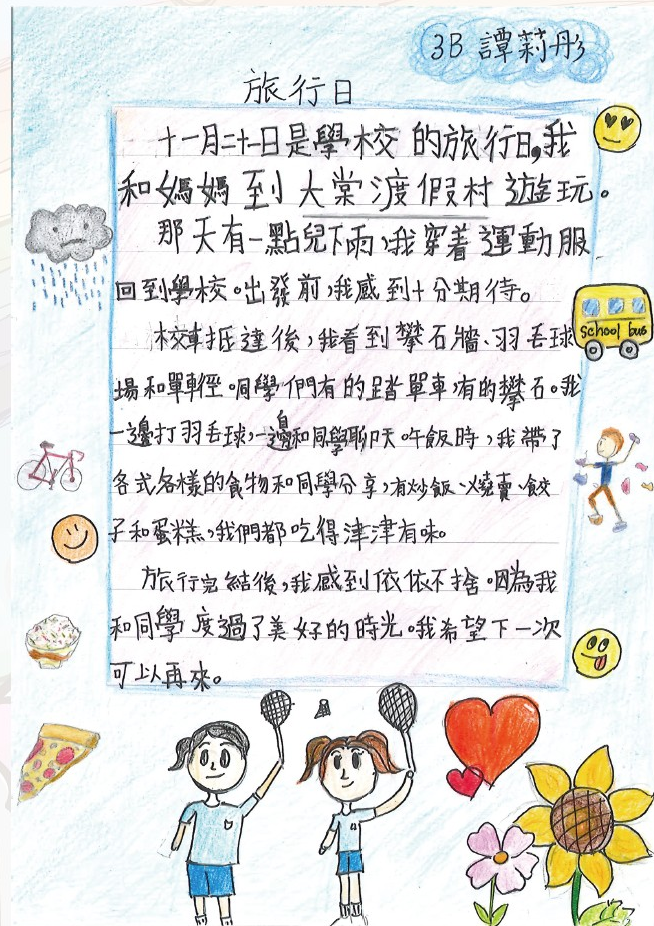 3B 譚莉彤
旅行日
十一月二十二日是學校的旅行日,我
和媽媽到大棠渡假村遊玩。
那天有一點兒下雨,我穿着運動服
回到學校。出發前,我感到十分期待。
校車抵達後,我看到攀石牆、羽毛球
場和單車徑。同學們有的踏單車,有的攀石。我
一邊打羽毛球,一邊和同學聊天。午飯時,我帶了
各式各樣的食物和同學分享,有炒飯、燒賣、餃
子和蛋糕,我們都吃得津津有味。
旅行完結後,我感到依依不捨。因為我
和同學度過了美好的時光。我希望下一次
可以再來。
school bus